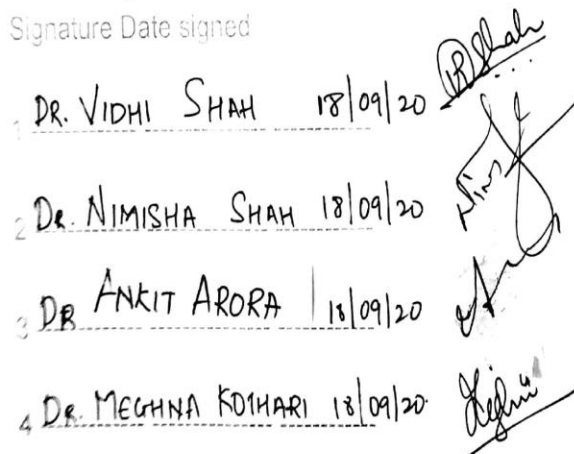 Signature Date signed
1 DR. VIDHI SHAH 18/09/20 Shah
2 DR. NIMISHA SHAH 18/09/20
3 DR ANKIT ARORA 18/09/20
4 DR. MEGHNA KOTHARI 18/09/20